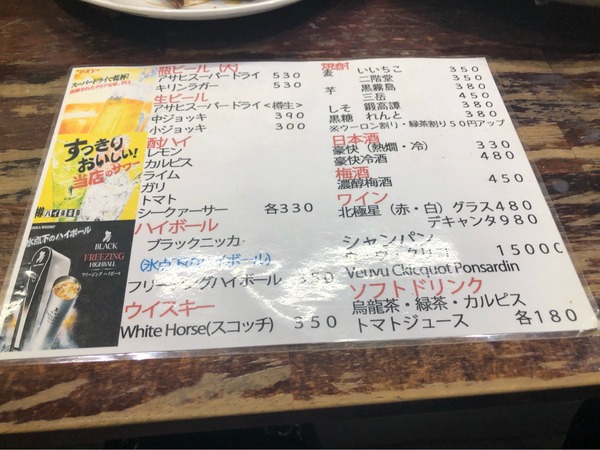 スーパードライで乾杯!
すっきり
おいしい!
当店のサワー
樽ハイ倶楽部
氷点下のハイボール
BLACK
FREEZING
HIGHBALL
フリージング ハイボール
瓶ビール (大)
アサヒスーパードライ 530
キリンラガー 530
生ビール
アサヒスーパードライ<樽生>
中ジョッキ 390
小ジョッキ 300
酎ハイ
レモン
カルピス
ライム
ガリ
トマト
シークァーサー 各330
ハイボール
ブラックニッカ
(氷点下のハイボール)
フリージングハイボール 350
ウイスキー
White Horse(スコッチ) 350
焼酎
麦 いいちこ 350
二階堂 350
芋 黒霧島 380
三岳 450
しそ 鍛高譚 380
黒糖 れんと 380
※ウーロン割り・緑茶割り50円アップ
日本酒
豪快 (熱燗・冷) 330
豪快冷酒 480
梅酒
濃醇梅酒 450
ワイン
北極星 (赤・白) グラス480
デキャンタ980
シャンパン
15000
Veuvu Ckicquot Ponsardin
ソフトドリンク
烏龍茶・緑茶・カルピス
トマトジュース 各180